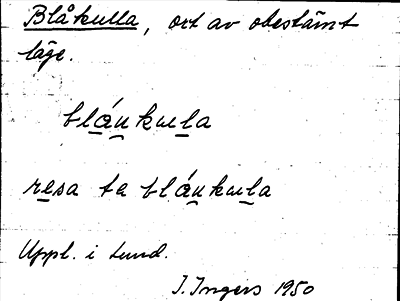 Blåkulla, ort av obestämt
läge.
bláukula
resa ta bláukula
Uppl. i Lund.
I. Ingers 1950